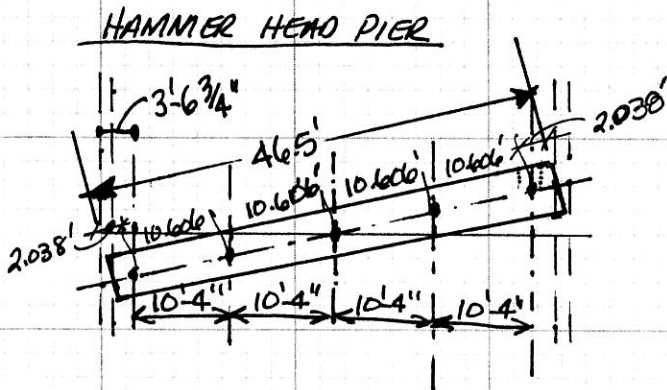 HAMMER HEAD PIER
3'-6 3/4"
46.5'
2.038'
10.606' 10.606' 10.606' 10.606'
2.038'
10'-4" 10'-4" 10'-4" 10'-4"